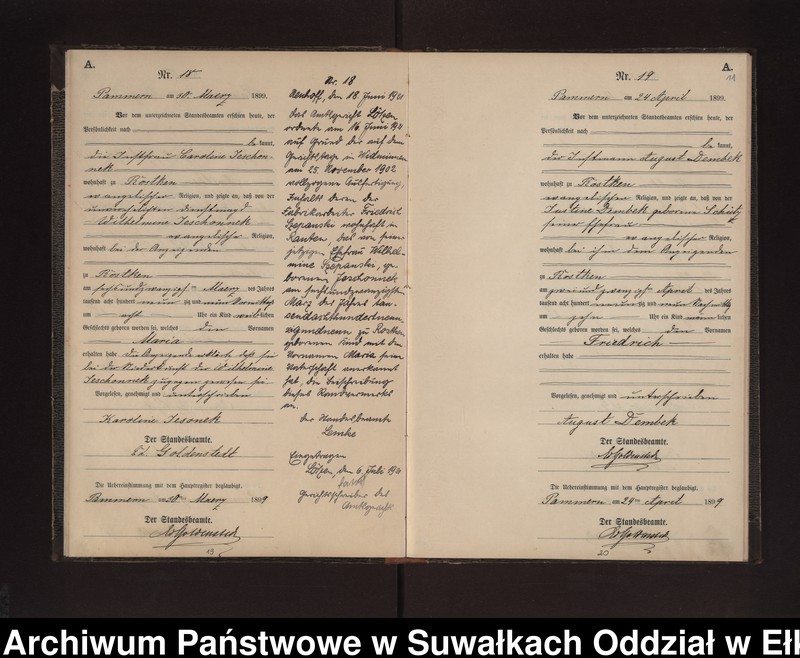 A.
Nr. 18
Pammern am 30. Maerz 1899.
Vor dem unterzeichneten Standesbeamten erschien heute, der
Persönlichkeit nach
be kannt,
die Instfrau Caroline Jeschon-
nek
wohnhaft zu Rostken
evangelischer Religion, und zeigte an, daß von der
unverehelichten Dienstmagd
Wilhelmine Jeschonnek
evangelischer Religion,
wohnhaft bei der Anzeigenden
zu Rostken
am sechsundzwanzigsten Maerz des Jahres
tausend acht hundert neunzig und neun Vormittags
um acht Uhr ein Kind weiblichen
Geschlechts geboren worden sei, welches den Vornamen
Maria
erhalten habe. Die Anzeigende erklärt, daß sie
bei der Niederkunft der Wilhelmine
Jeschonnek zugegen gewesen sei
Vorgelesen, genehmigt und unterschrieben
Karoline Jesonek
Der Standesbeamte.
Goldenstedt
Die Uebereinstimmung mit dem Hauptregister beglaubigt.
Pammern am 30ten Maerz 1899
Der Standesbeamte.
Goldenstedt
19
Nr. 18
Neuhoff, den 18. Juni 19
Das Amtsgericht Lötzen
ordnete am 16. Juni
auf Grund der auf dem
Gerichtstage in Widminnen
am 25. November 1902
vollzogenen Ausfertigung,
Inhalts deren der
Fabrikarbeiter Friedrich
Szepanski wohnhaft in
Rauten, das von seiner
jetzigen Ehefrau Wilhel-
mine Szepanski, ge-
borenen Jeschonnek
am sechsundzwanzigsten
März des Jahres tau-
sendachthundertneun-
zigundneun zu Rostken
geborenen Kind mit dem
Vornamen Maria seine
Vaterschaft anerkannt
hat, die Beischreibung
dieses Randvermerkes
an.
Der Standesbeamte
Lemke
Eingetragen
Lötzen, den 6. Juli 19
Gerichtsschreiber des
Amtsgericht
A.
11
Nr. 19
Pammern am 24 April 1899.
Vor dem unterzeichneten Standesbeamten erschien heute, der
Persönlichkeit nach
be kannt,
der Instmann August Dembek
wohnhaft zu Rostken
evangelischen Religion, und zeigte an, daß von der
Justine Dembek geborene Schütz
seiner Ehefrau
evangelischer Religion,
wohnhaft bei ihm dem Anzeigenden
zu Rostken
am zweiundzwanzigsten April des Jahres
tausend acht hundert neunzig und neun Nachmittags
um zehn Uhr ein Kind männlichen
Geschlechts geboren worden sei, welches den Vornamen
Friedrich
erhalten habe
Vorgelesen, genehmigt und unterschrieben
August Dembek
Der Standesbeamte.
Goldenstedt
Die Uebereinstimmung mit dem Hauptregister beglaubigt.
Pammern am 24ten April 1899
Der Standesbeamte.
Goldenstedt
20
Archiwum Państwowe w Suwałkach Oddział w Eł